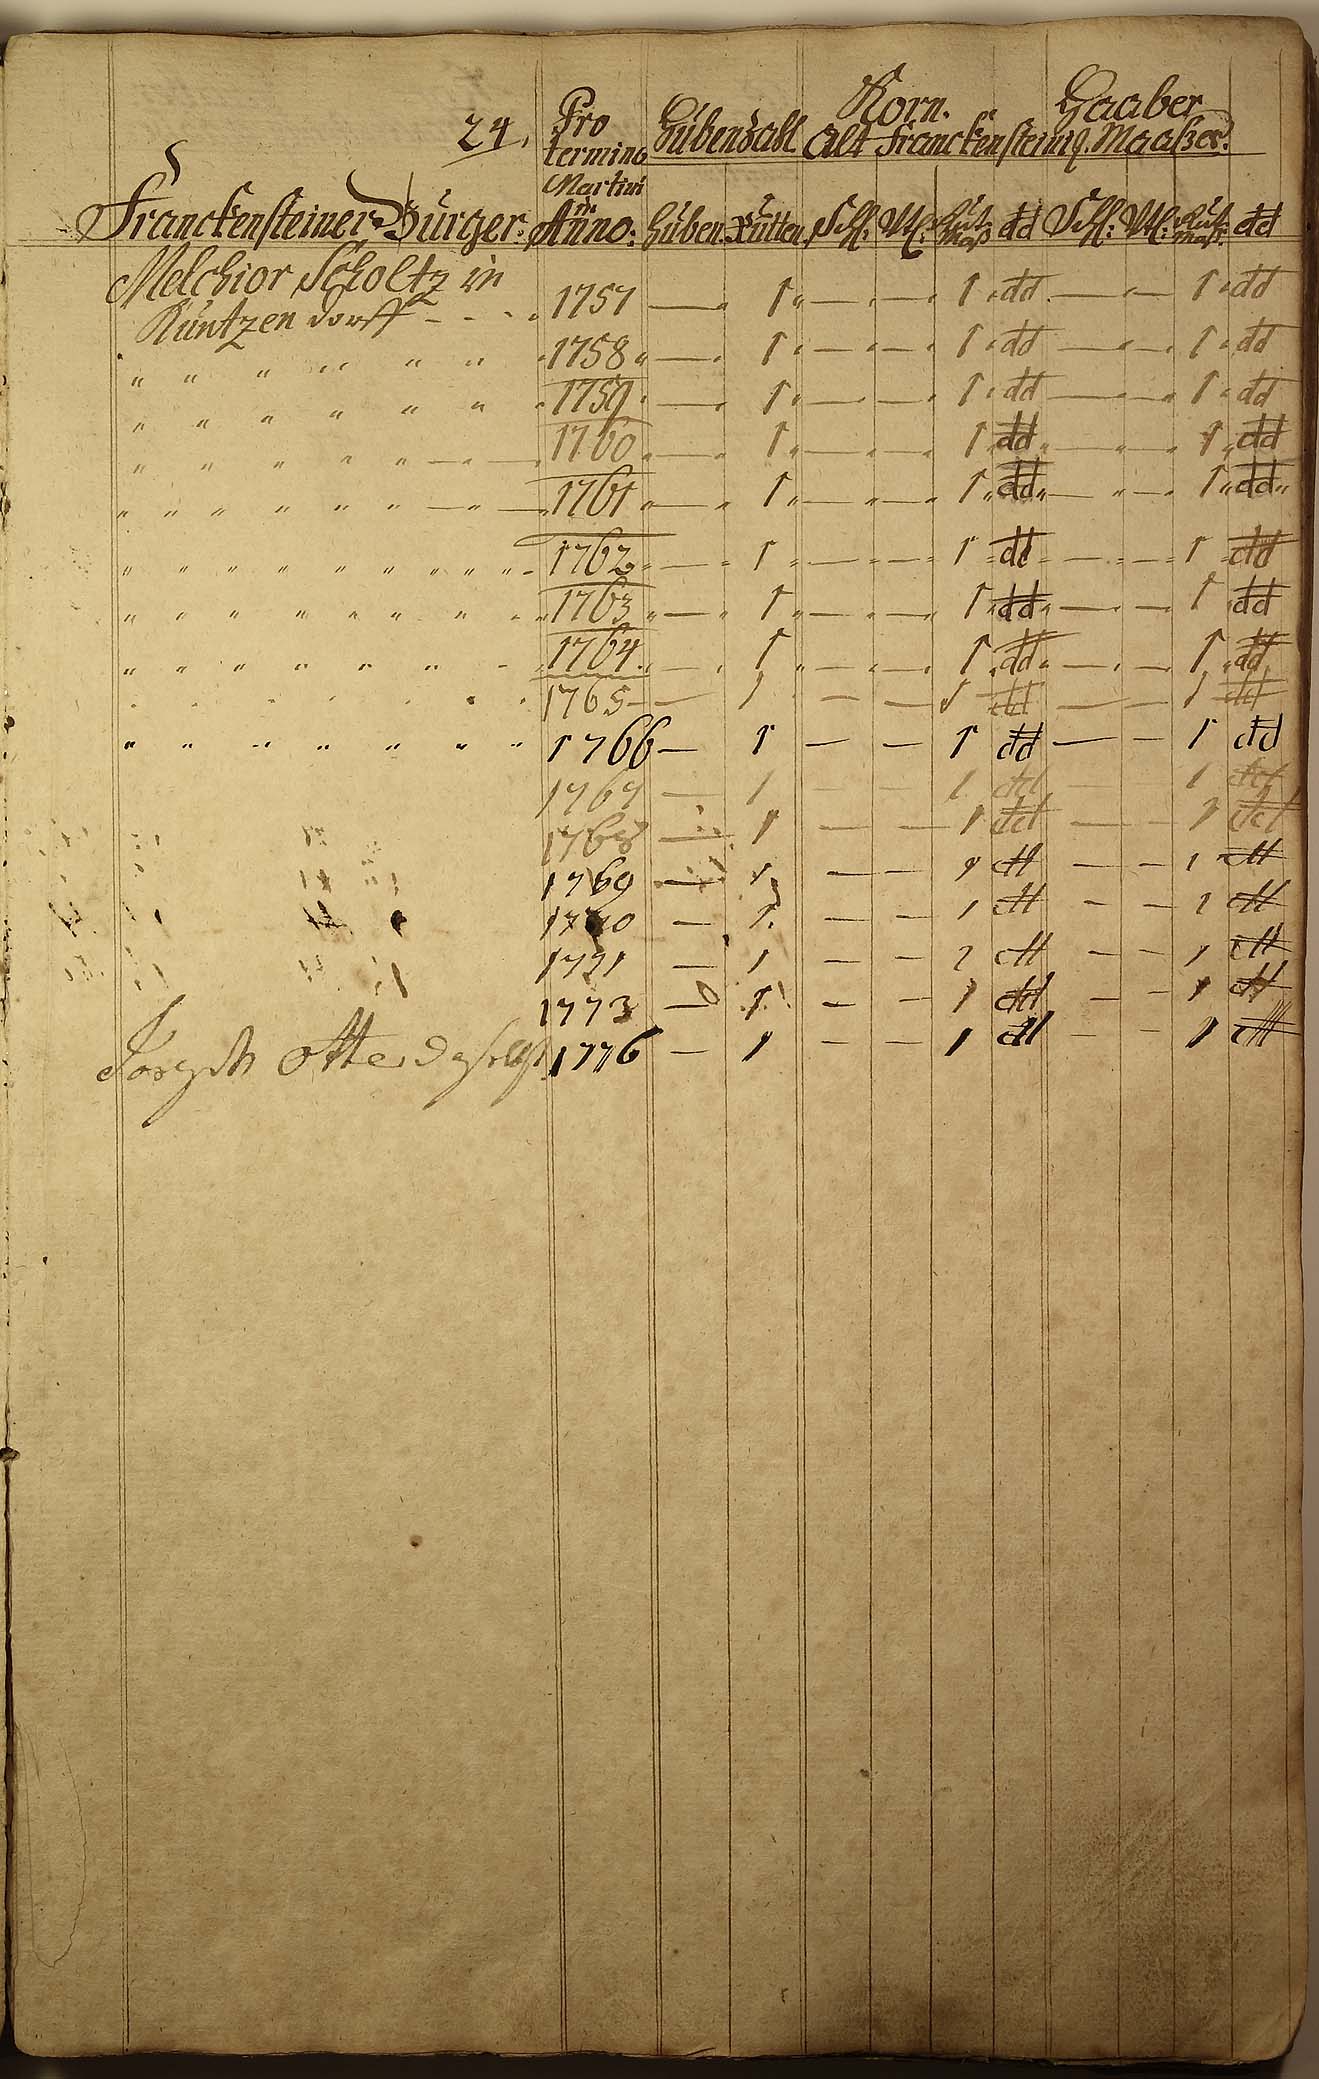 24.
Pro termino Martini in Anno:
Hubenzahl
Korn. Haaber
Alt Franckensteinig. Maaßes.
Franckensteiner Bürger: Huben. Rutten. Schl: Vtl: Maß dd Schl: Vtl: Maß. dd
Melchior Scholtz in
Kuntzendorff - - - 1757 — 1 — — 1 dd — — 1 dd
" " " " " " 1758 — 1 — — 1 dd — — 1 dd
" " " " " " 1759 — 1 — — 1 dd — — 1 dd
" " " " " — — 1760 — 1 — — 1 dd — — 1 dd
" " " " " " " — " — 1761 — 1 — — 1 dd — — 1 dd
" " " " " " " " " " 1762 — 1 — — 1 dd — — 1 dd
" " " " " " " " " 1763 — 1 — — 1 dd — — 1 dd
" " " " " " " 1764 — 1 — — 1 dd — — 1 dd
" " " " " " " 1765 — 1 — — 1 dd — — 1 dd
" " " " " " " 1766 — 1 — — 1 dd — — 1 dd
1767 — 1 — — 1 dd — — 1 dd
1768 — 1 — — 1 dd — — 1 dd
1769 — 1 — — 1 dd — — 1 dd
1770 — 1 — — 1 dd — — 1 dd
1771 — 1 — — 1 dd — — 1 dd
1773 — 1 — — 1 dd — — 1 dd
Joseph Otte daselbst 1776 — 1 — — 1 dd — — 1 dd